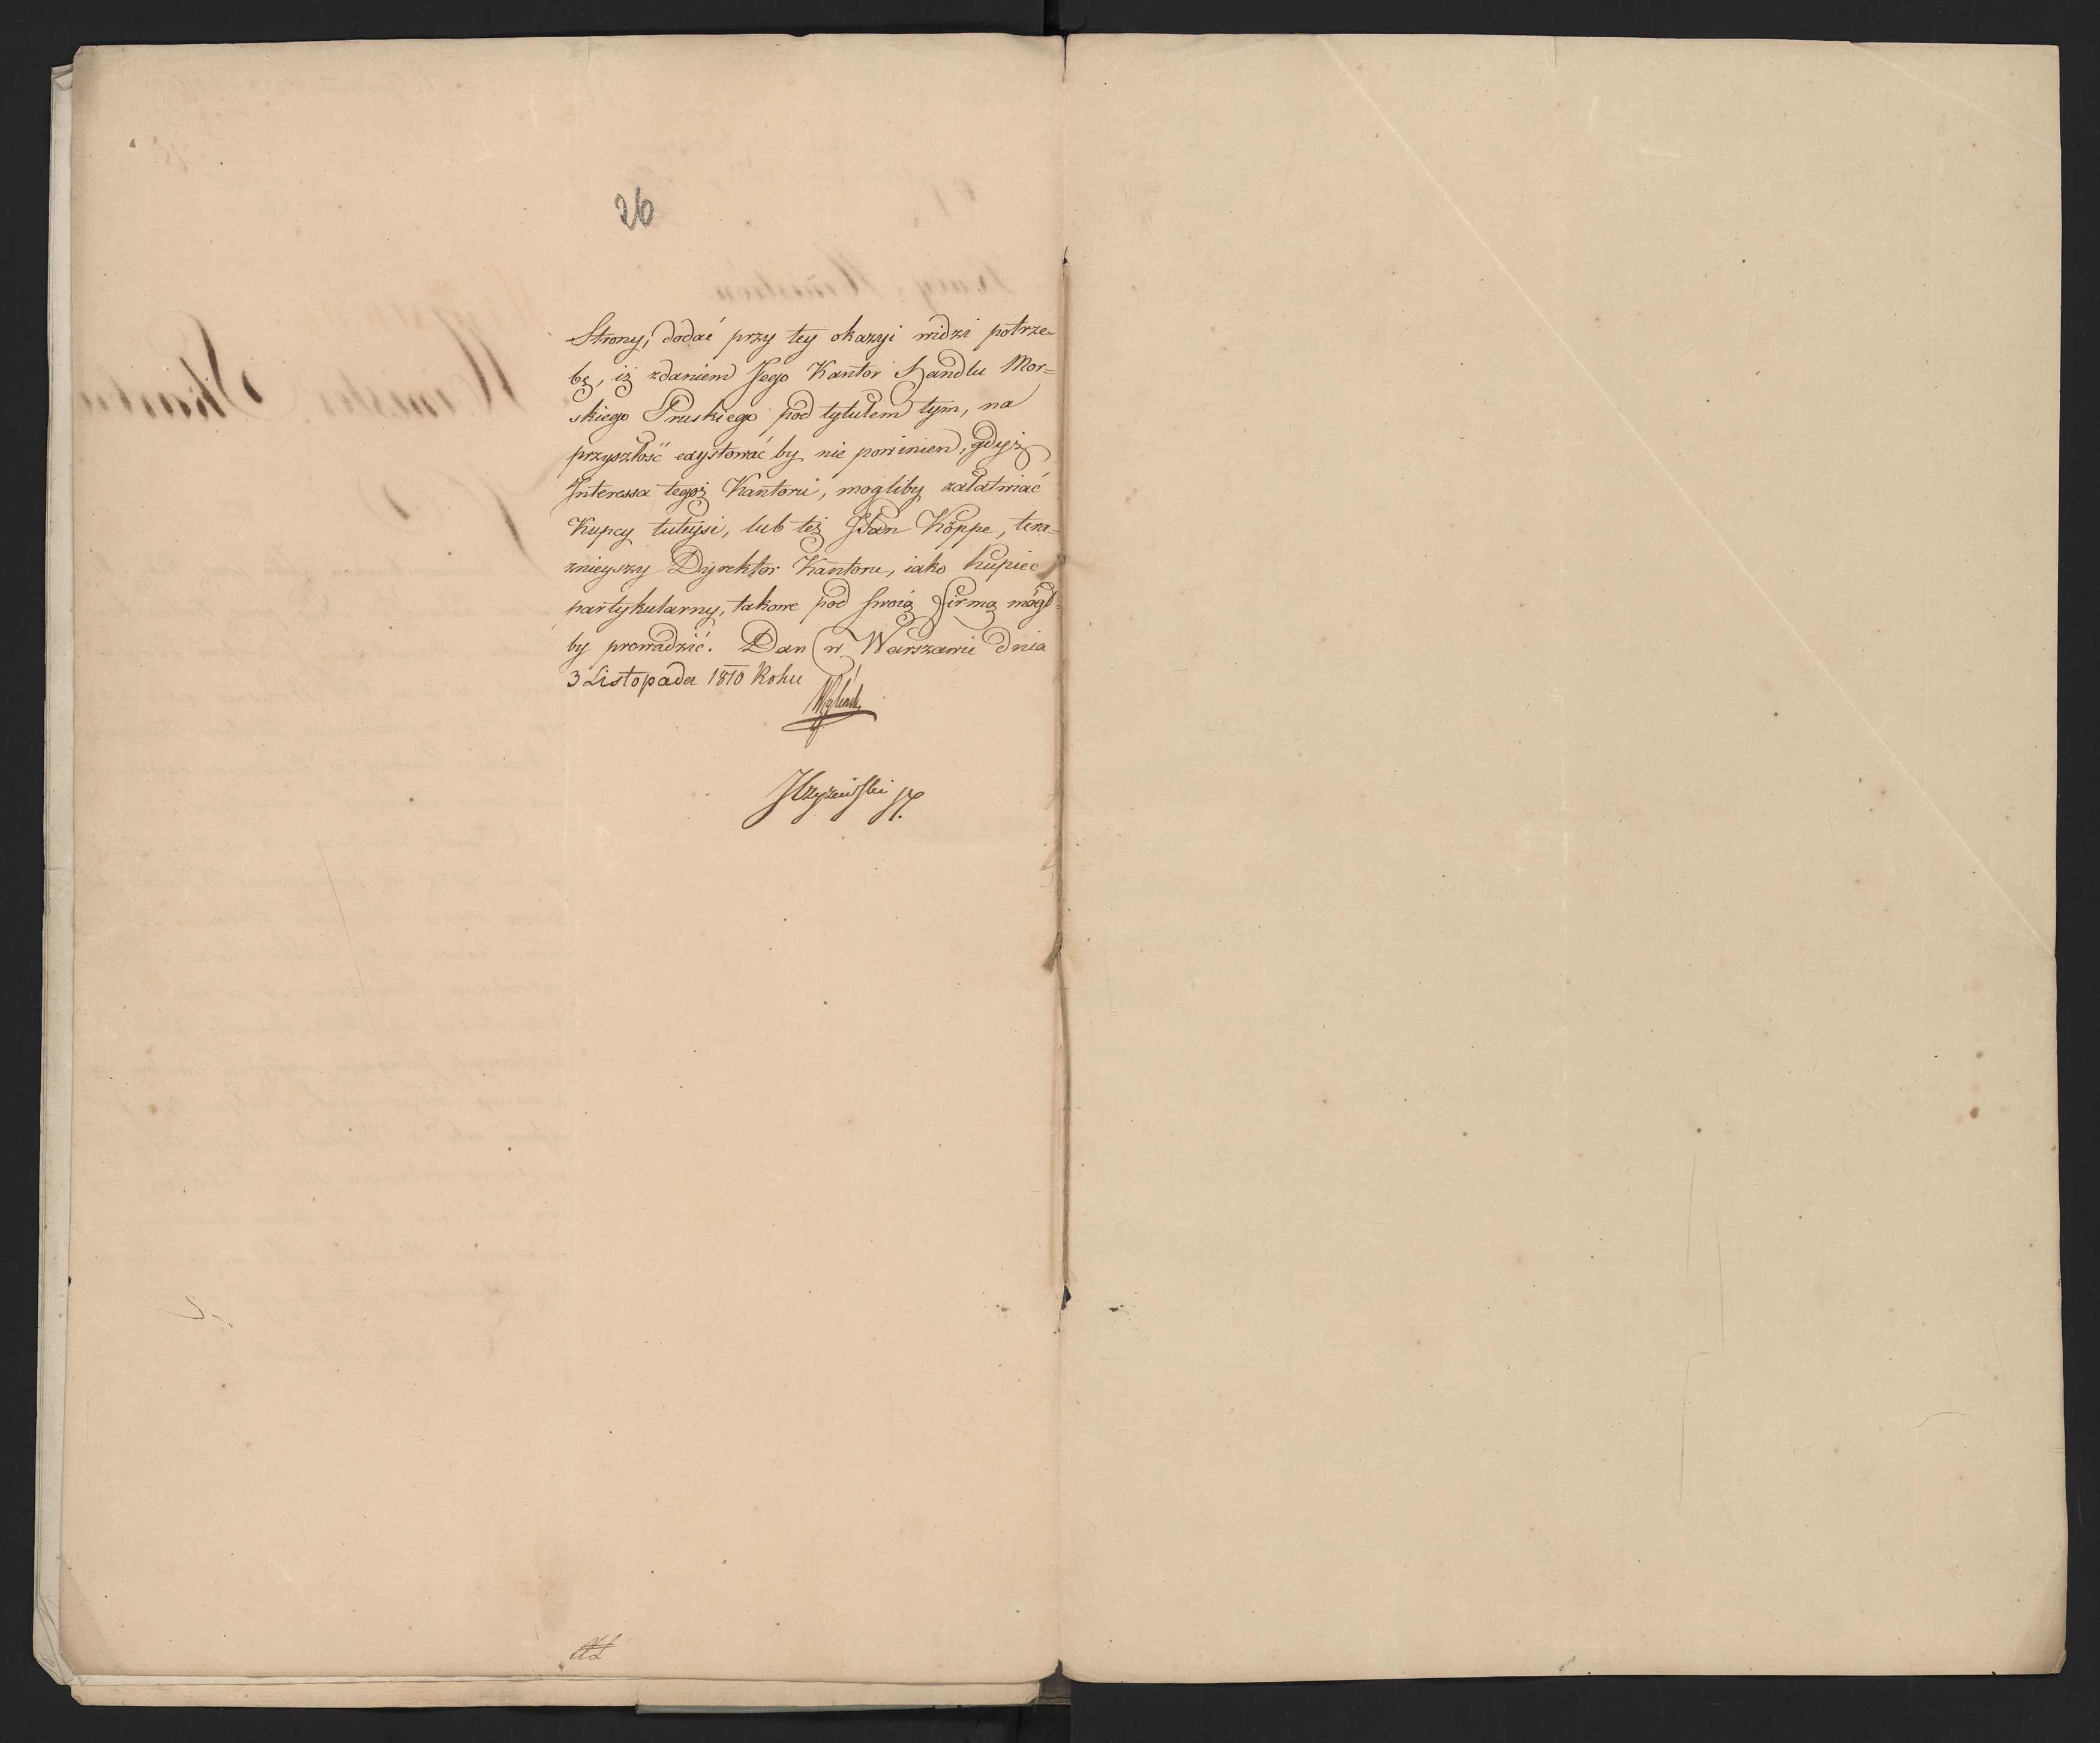 26
Strony, dodać przy tey okazyi widzi potrze=
bę, iż zdaniem Jego Kantor Handlu Mor=
skiego Pruskiego pod tytułem tym, na
przyszłość exystować by nie powinien, gdyż
Interessa tegoż Kantoru, mogliby załatwiać
Kupcy tuteysi, lub też JPan Köppe, tera=
znieyszy Dyrektor Kantoru, iako Kupiec
partykularny, takowe pod swoią firmą mógł=
by prowadzić. Dan w Warszawie dnia
3 Listopada 1810 Roku